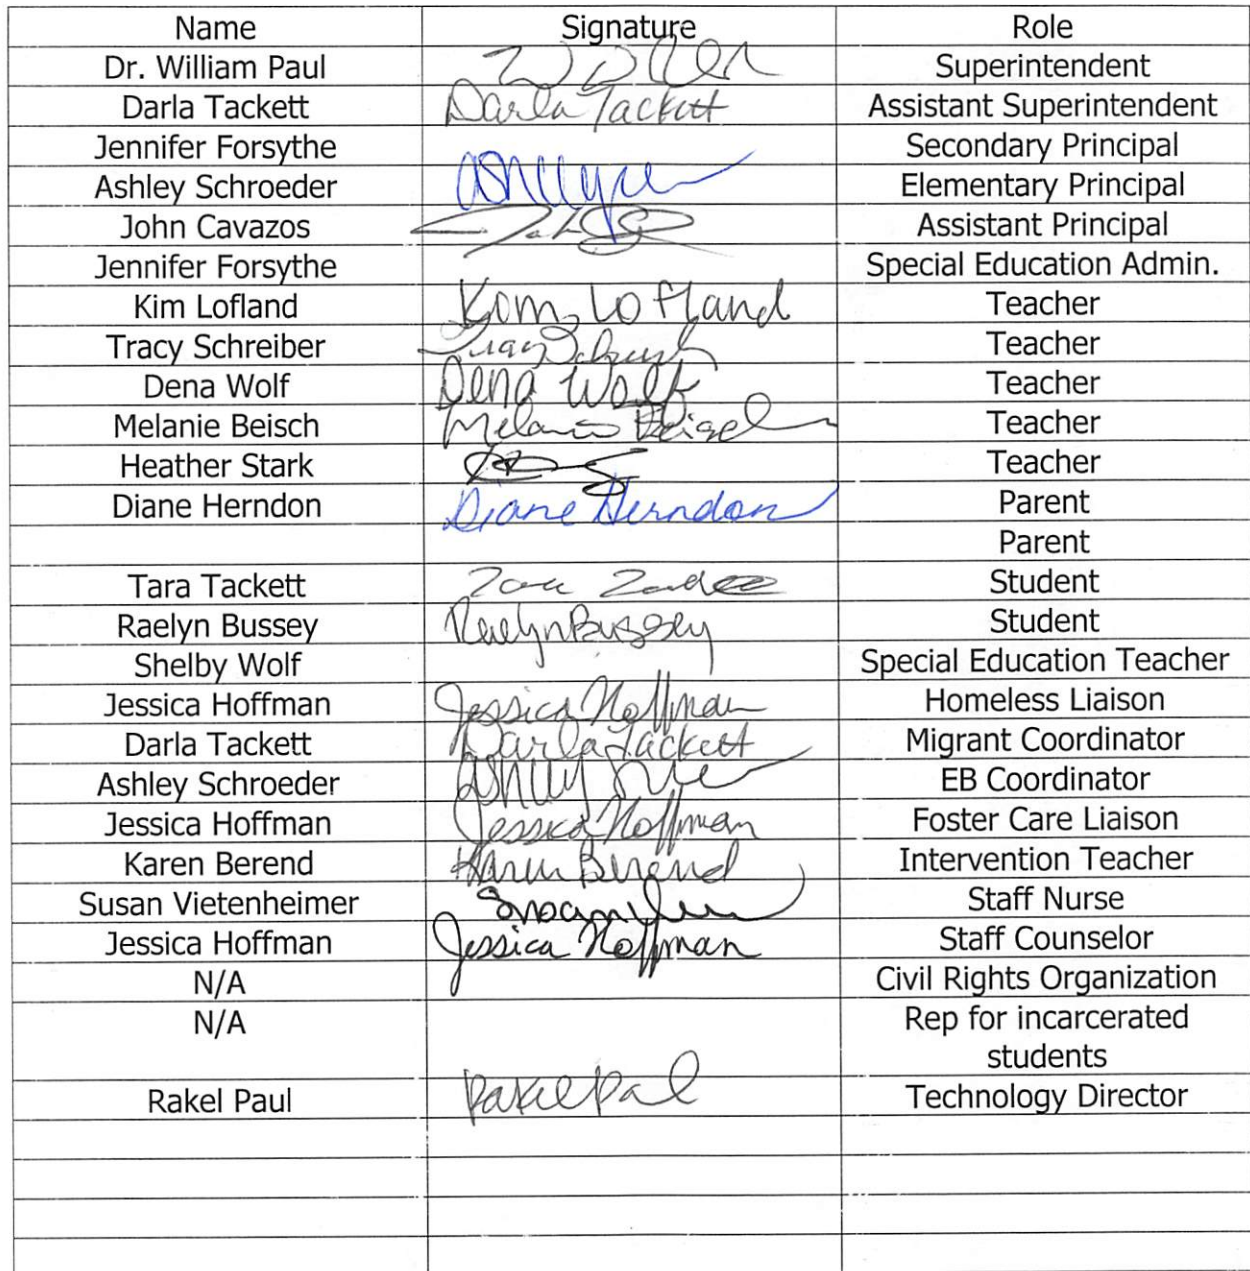 Name Signature Role
Dr. William Paul Superintendent
Darla Tackett Darla Tackett Assistant Superintendent
Jennifer Forsythe Secondary Principal
Ashley Schroeder Elementary Principal
John Cavazos Assistant Principal
Jennifer Forsythe Special Education Admin.
Kim Lofland Kim Lofland Teacher
Tracy Schreiber Teacher
Dena Wolf Dena Wolf Teacher
Melanie Beisch Melanie Teacher
Heather Stark Teacher
Diane Herndon Diane Herndon Parent
Parent
Tara Tackett Student
Raelyn Bussey Raelyn Bussey Student
Shelby Wolf Special Education Teacher
Jessica Hoffman Jessica Hoffman Homeless Liaison
Darla Tackett Darla Tackett Migrant Coordinator
Ashley Schroeder Ashley EB Coordinator
Jessica Hoffman Jessica Hoffman Foster Care Liaison
Karen Berend Karen Berend Intervention Teacher
Susan Vietenheimer Staff Nurse
Jessica Hoffman Jessica Hoffman Staff Counselor
N/A Civil Rights Organization
N/A Rep for incarcerated
students
Rakel Paul Rakel Paul Technology Director